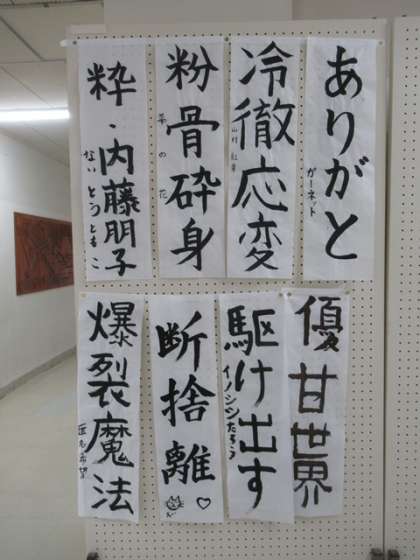 ありがと
ガーネット
冷徹応変
粉骨砕身
菜の花
粋・内藤朋子
ないとうともこ
優甘世界
駆け出す
イノシシたろう
断捨離
爆裂魔法